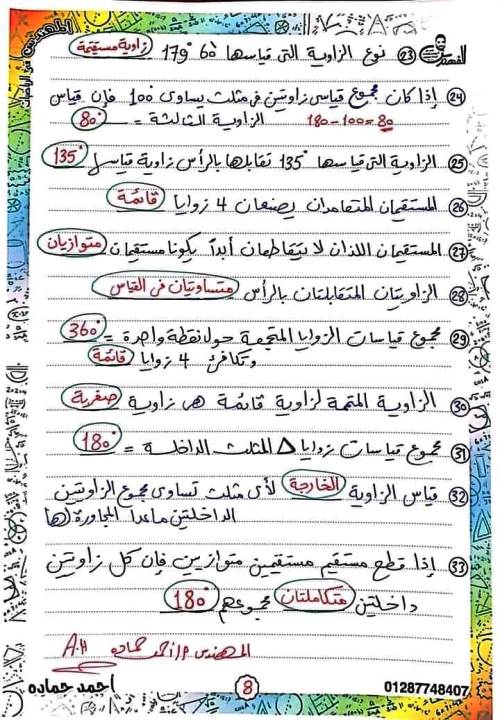 المهندس فى الرياضيات
المهندس
(23) نوع الزاوية التى قياسها 60َ 179° زاوية مستقيمة
(24) إذا كان مجموع قياسى زاوتين فى مثلث يساوى 100° فإن قياس
الزاوية الثالثة = 80° 180-100=80
(25) الزاوية التى قياسها 135° تقابلها بالرأس زاوية قياسها 135°
(26) المستقيمان المتعامدان يصنعان 4 زوايا قائمة
(27) المستقيمان اللذان لا يتقاطعان أبدًا يكونا مستقيمان متوازيان
(28) الزاويتان المتقابلتان بالرأس متساويتان فى القياس
(29) مجموع قياسات الزوايا المتجمعة حول نقطة واحدة = 360°
وتكافئ 4 زوايا قائمة
(30) الزاوية المتممة لزاوية قائمة هى زاوية صفرية
(31) مجموع قياسات زوايا Δ المثلث الداخلة = 180°
(32) قياس الزاوية الخارجة لأى مثلث تساوى مجموع الزاوتين
الداخلتين ماعدا المجاورة لها
(33) إذا قطع مستقيم مستقيمين متوازيين فإن كل زاوتين
داخلتين متكاملتان مجموعهم 180°
المهندس م/احمد حماده A.H
احمد حماده 8 01287748407